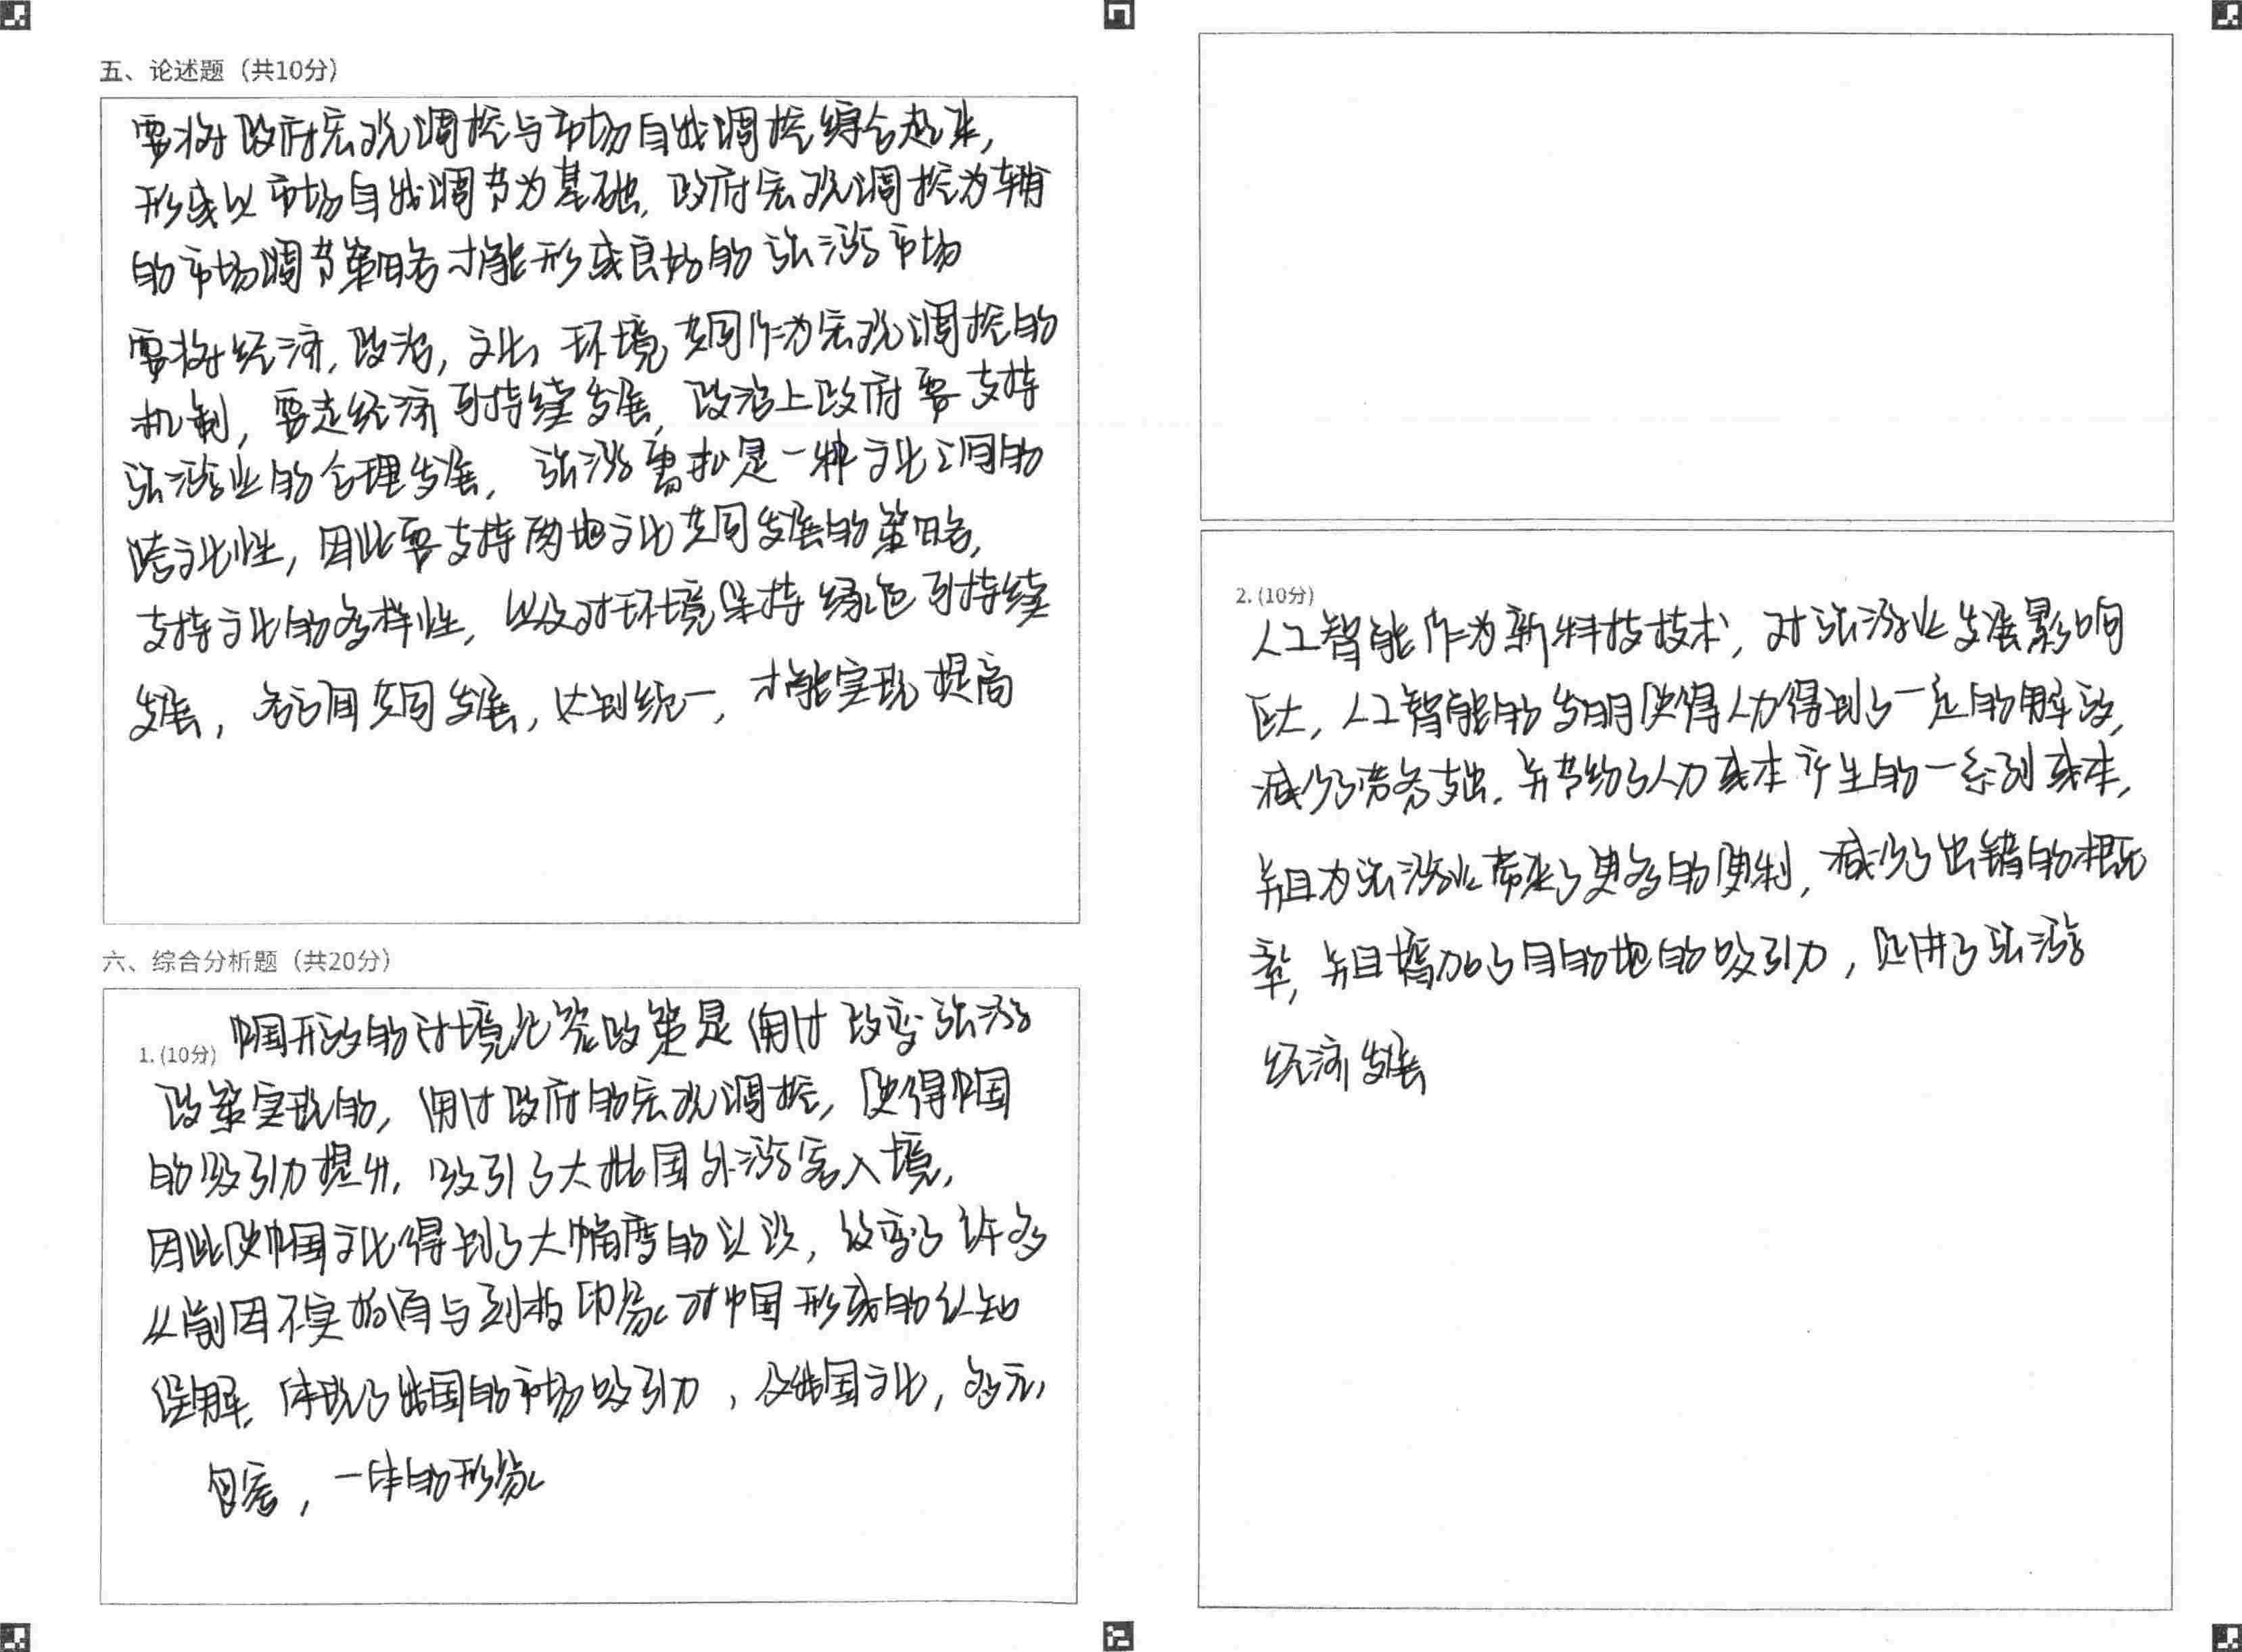 五、论述题（共10分）
要将政府宏观调控与市场自我调控综合起来，
形成以市场自我调节为基础，政府宏观调控为辅
的市场调节策略才能形成良好的旅游市场
要将经济，政治，文化，环境共同作为宏观调控的
机制，要走经济可持续发展，政治上政府要支持
旅游业的合理发展，旅游本是一种文化之间的
跨文化性，因此要支持两地文化共同发展的策略，
支持文化的多样性，以及对环境保持绿色可持续
发展，各方间共同发展，达到统一，才能实现提高
六、综合分析题（共20分）
1. (10分) 中国形成的过境免签政策是通过改变旅游
政策实现的，通过政府的宏观调控，使得中国
的吸引力提升，吸引了大批国外游客入境，
因此使中国文化得到了大幅度的认识，改变了许多
从前因不实信息与刻板印象对中国形成的认知
误解，体现了出国的市场吸引力，及中国文化，多元，
包容，一体的形象
2. (10分)
人工智能作为新科技技术，对旅游业发展影响
巨大，人工智能的发明使得人力得到了一定的解放，
减少了劳务支出，并节约了人力成本产生的一系列成本，
并且为旅游业带来了更多的便利，减少了出错的概
率，并且增加了目的地的吸引力，促进了旅游
经济发展